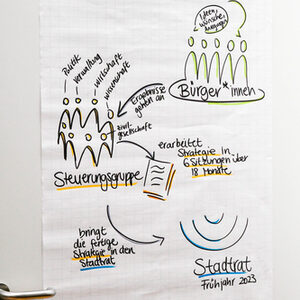 Ideen,
wünsche,
Bürger*innen
Politik
verwaltung
wirtschaft
wissenschaft
Ergebnisse
gehen an
zivil-
gesellschaft
erarbeitet
Strategie in
6 Sitzungen über
18 Monate
Steuerungsgruppe
bringt
die fertige
Strategie in den
Stadtrat
Stadtrat
Frühjahr 2023